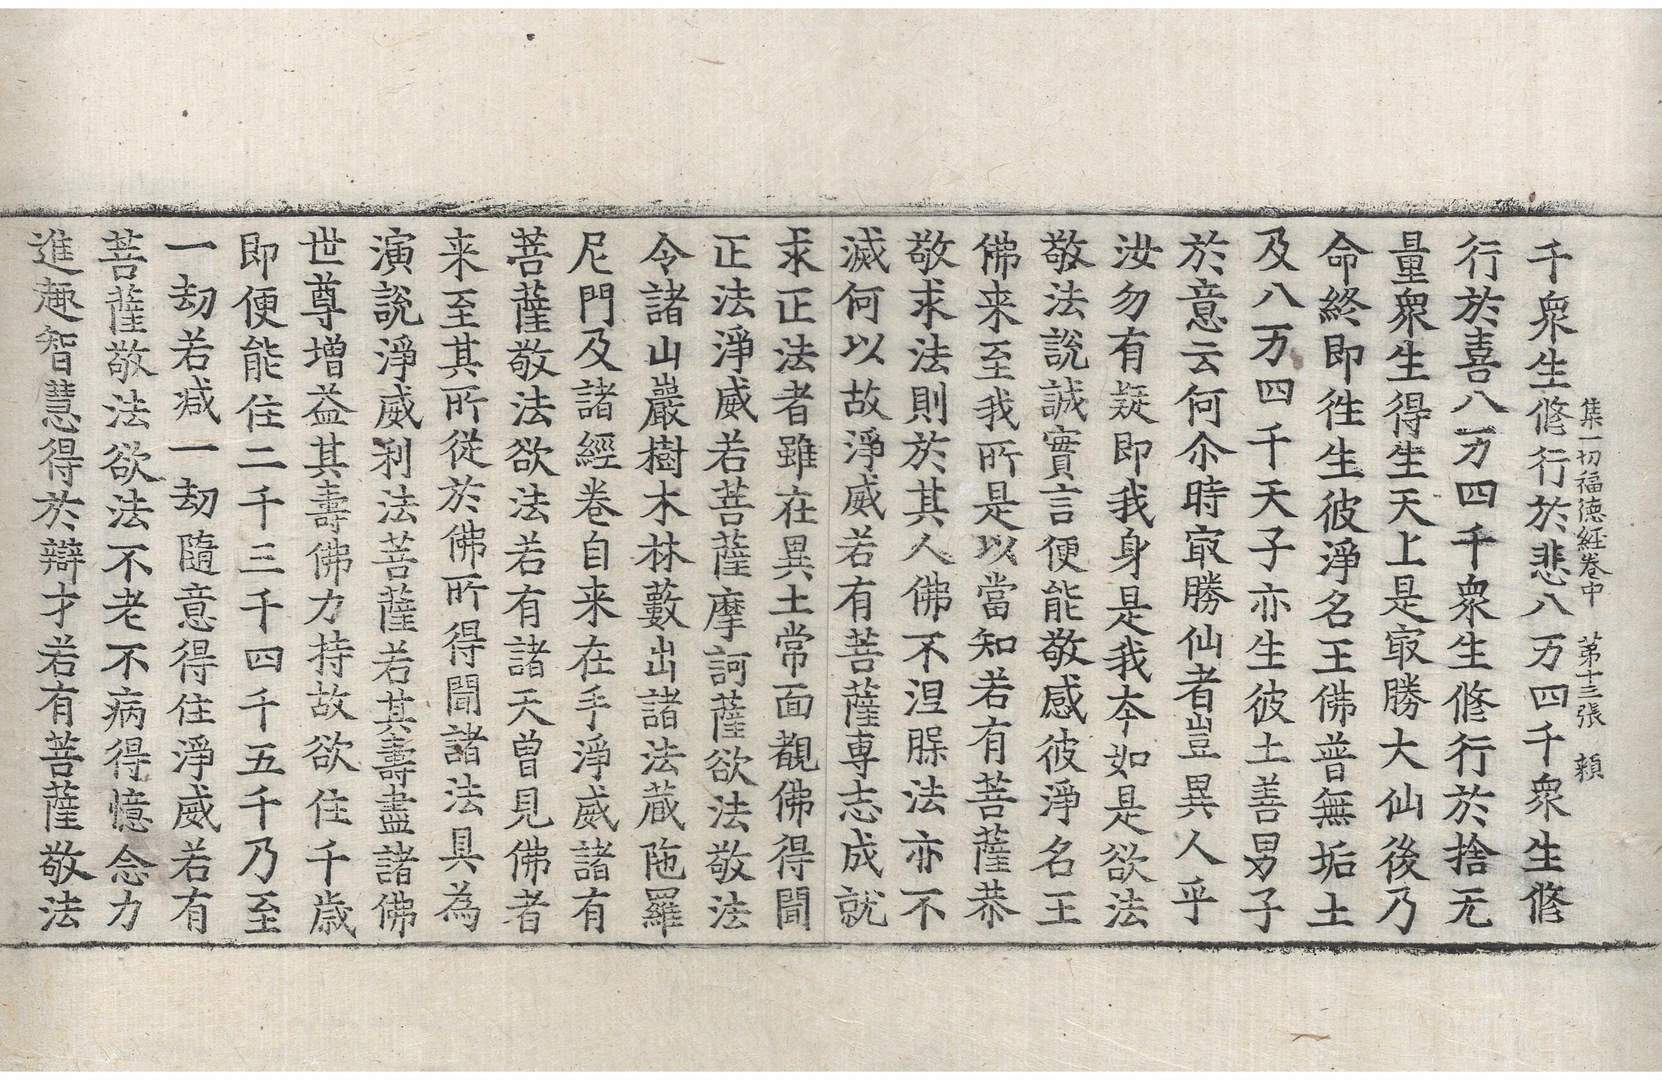 集一切福徳経巻中　第十三張　賴
千衆生修行於悲八万四千衆生修
行於喜八万四千衆生修行於捨无
量衆生得生天上是㝡勝大仙後乃
命終即徃生彼淨名王佛普無垢土
及八万四千天子亦生彼土善男子
於意云何尒時㝡勝仙者豈異人乎
汝勿有疑即我身是我夲如是欲法
敬法說誠實言便能敬感彼淨名王
佛来至我所是以當知若有菩薩恭
敬求法則於其人佛不涅槃法亦不
滅何以故淨威若有菩薩専志成就
求正法者雖在異土常面覩佛得聞
正法淨威若菩薩摩訶薩欲法敬法
令諸山巖樹木林藪出諸法蔵陁羅
尼門及諸經卷自来在手淨威諸有
菩薩敬法欲法若有諸天曾見佛者
来至其所從於佛所得聞諸法具為
演說淨威利法菩薩若其壽盡諸佛
世尊增益其壽佛力持故欲住千歳
即便能住二千三千四千五千乃至
一劫若减一劫隨意得住淨威若有
菩薩敬法欲法不老不病得憶念力
進趣智慧得於辯才若有菩薩敬法